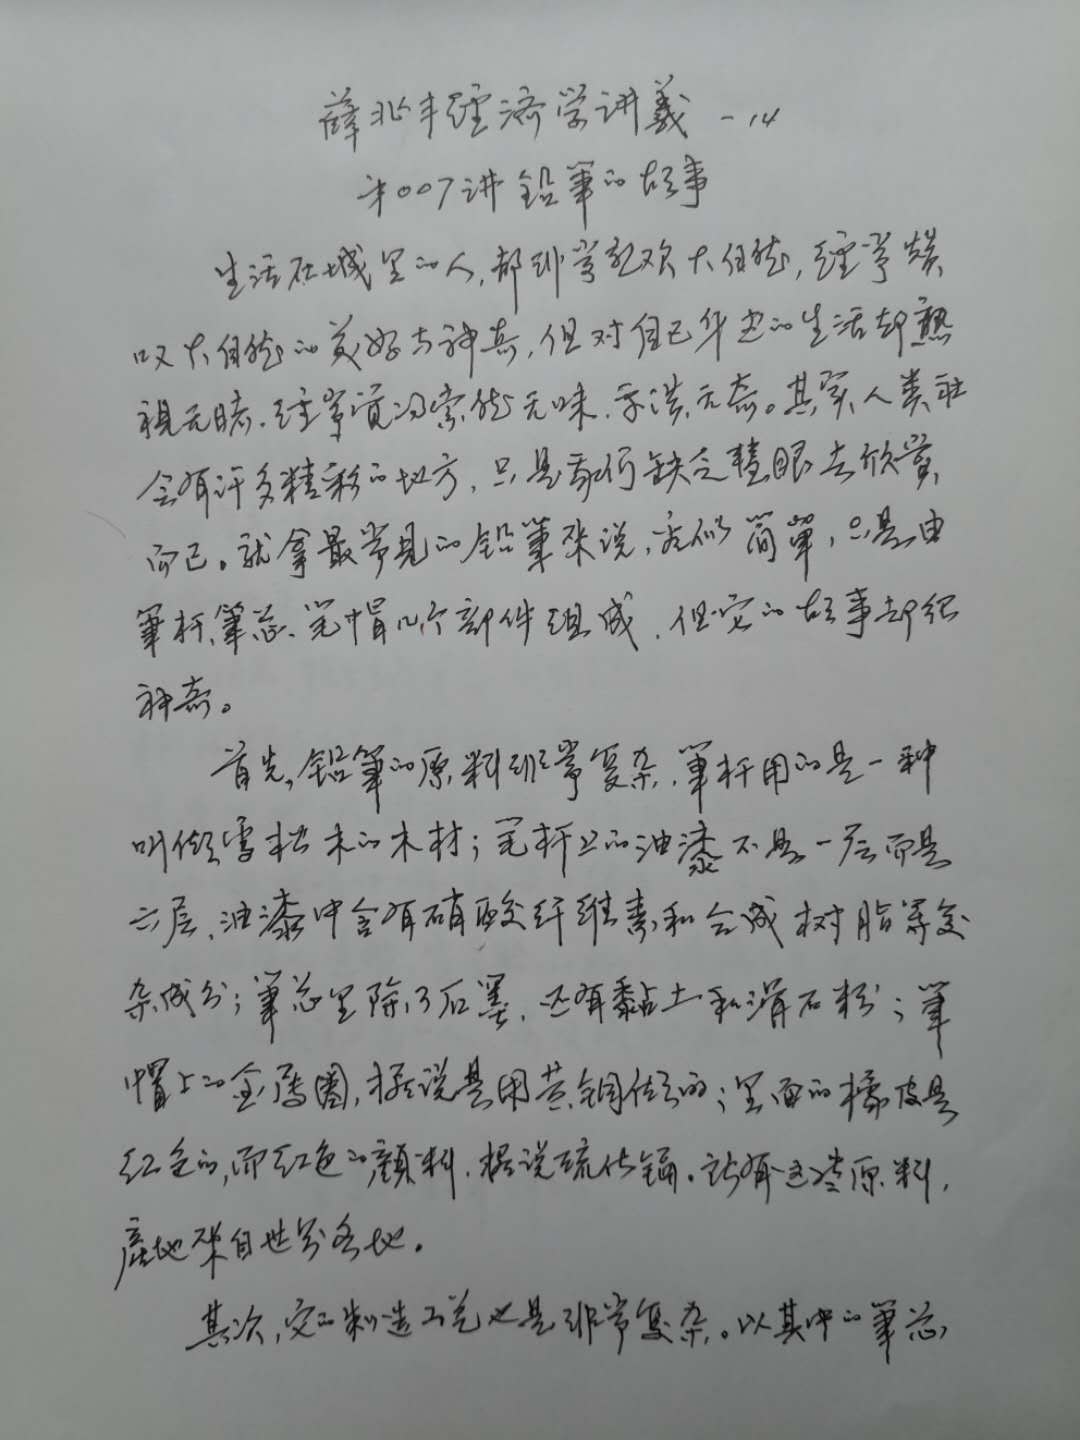 薛兆丰經济学讲義 - 14
第007讲 鉛筆的故事
生活在城里的人,都非常喜欢大自然,經常赞
叹大自然的美好与神奇,但对自己身边的生活却熟
視无睹、經常覚得索然无味、平淡无奇。其实人类社
会有许多精彩的地方,只是我们缺乏慧眼去欣賞
而已。就拿最常見的鉛筆来说,看似簡單,只是由
筆杆、筆芯、笔帽几个部件组成,但它的故事却很
神奇。
首先,鉛筆的原料非常复杂,筆杆用的是一种
叫做雪松木的木材;笔杆上的油漆不是一层而是
六层,油漆中含有硝酸纤維素和合成树脂等复
杂成分;筆芯里除了石墨,还有黏土和滑石粉;筆
帽上的金属圈,据说是用黄銅做的;里面的橡皮是
红色的,而红色的顏料,据说硫化镉。所有这些原料,
產地来自世界各地。
其次,它的制造工艺也是非常复杂。以其中的筆芯